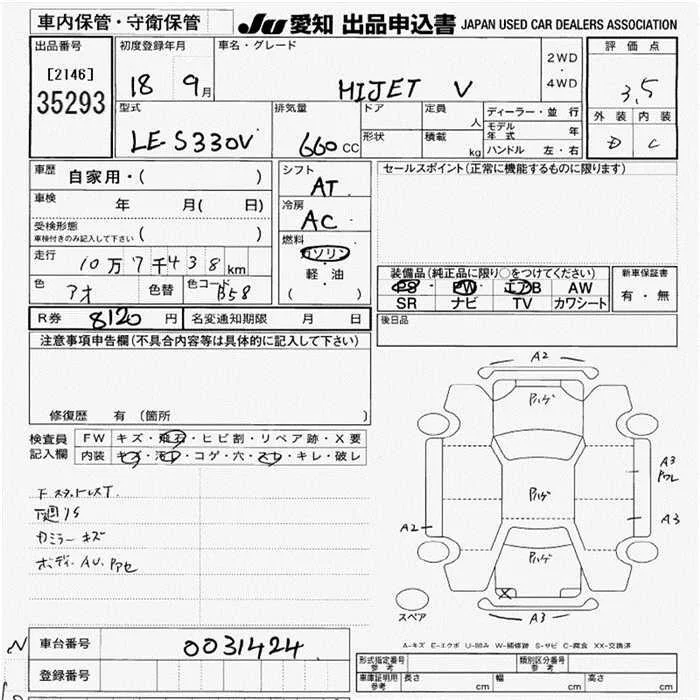 車内保管・守衛保管
JU 愛知 出品申込書 JAPAN USED CAR DEALERS ASSOCIATION
出品番号
[2146]
35293
初度登録年月
18 9月
車名・グレード
HIJET V
2WD
・
4WD
評価点
3.5
外装 内装
D C
型式
LE-S330V
排気量
660 CC
ドア
形状
定員
人
積載
kg
ディーラー・並行
モデル年式 年
ハンドル 左・右
車歴 自家用・( )
車検 年 月( 日)
受検形態
車検付きのみ記入して下さい ( )
走行 10万7千438km
色 アオ 色替 色コード B58
シフト
AT
冷房
AC
燃料
ガソリン
・
軽・油
( )
セールスポイント(正常に機能するものに限ります)
装備品(純正品に限り○をつけてください)
PS PW エアB AW
SR ナビ TV カワシート
新車保証書
有・無
R券 8120円 名変通知期限 月 日
後日品
注意事項申告欄(不具合内容等は具体的に記入して下さい)
修復歴 有(箇所 )
検査員
記入欄
FW キズ・飛石・ヒビ割・リペア跡・X要
内装 キズ・汚れ・コゲ・穴・スレ・キレ・破レ
下廻りS
カミラー キズ
ボディーAU.アセ
A2
A2
A3
A3
A3
ハゲ
ハゲ
ハゲ
X
スペア
A-キズ E-エクボ U-凹み W-補修跡 S-サビ C-腐食 XX-交換済
車台番号 0031424
登録番号
形式指定番号
参考
類別区分番号
参考
車庫証明用
参考
長さ cm 幅 cm 高さ cm